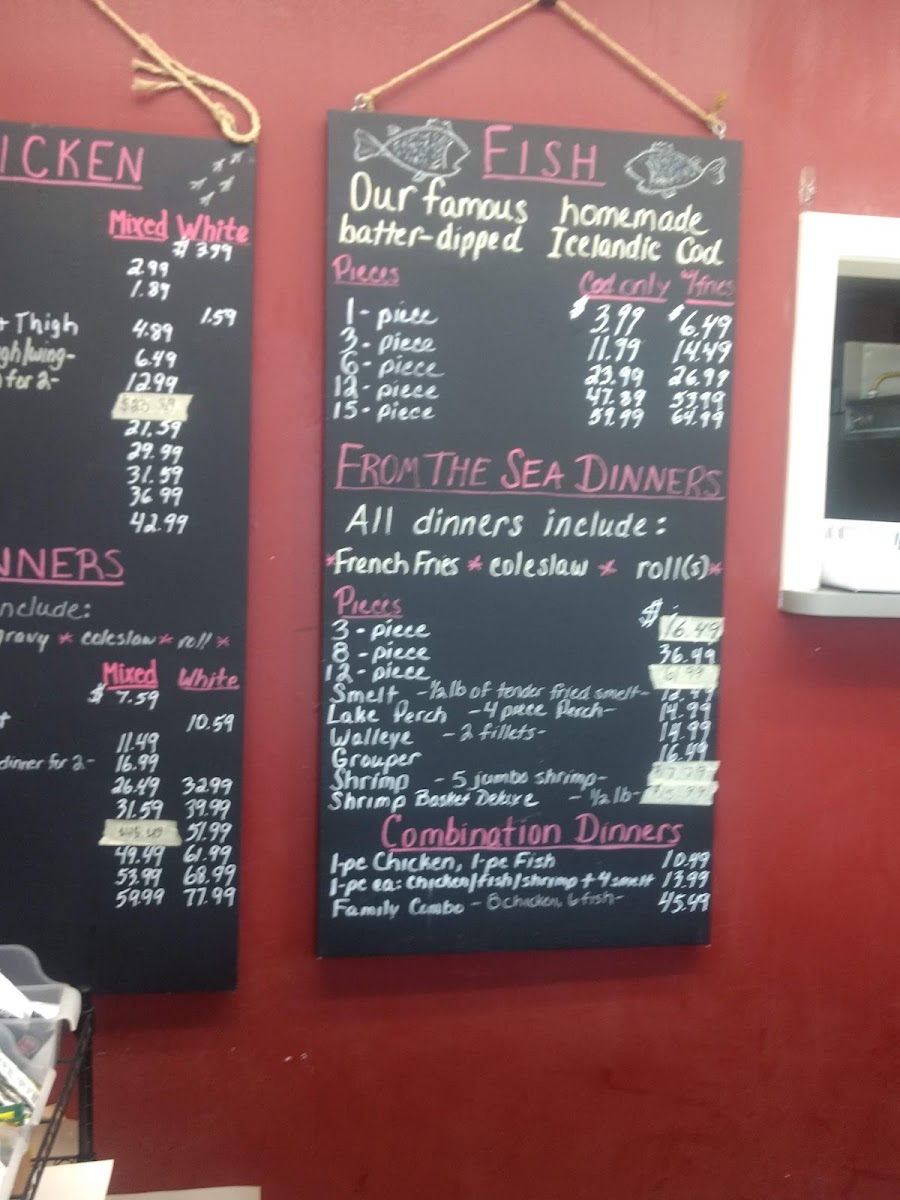 ICKEN
Mixed White
$ 3.99
2.99
1.89
1.59
+ Thigh 4.89
gh/wing- 6.49
for 2- 12.99
21.59
29.99
31.59
36.99
42.99
NNERS
nclude:
gravy * coleslaw * roll *
Mixed White
$ 7.59
10.59
11.49
dinner for 2- 16.99
26.49 32.99
31.59 39.99
51.99
49.49 61.99
53.99 68.99
59.99 77.99
FISH
Our famous homemade
batter-dipped Icelandic Cod
Pieces Cod only w/fries
1- piece $ 3.99 $ 6.49
3- piece 11.99 14.49
6- piece 23.99 26.99
12- piece 47.89 53.99
15- piece 59.99 64.99
FROM THE SEA DINNERS
All dinners include:
*French Fries * coleslaw * roll(s)*
Pieces $
3- piece 16.49
8- piece 36.49
12- piece
Smelt -1/2 lb of tender fried smelt-
Lake Perch -4 piece Perch- 14.99
Walleye - 2 fillets- 14.99
Grouper 16.49
Shrimp - 5 jumbo shrimp-
Shrimp Basket Deluxe - 1/2 lb-
Combination Dinners
1-pc Chicken, 1-pc Fish 10.99
1-pc ea: Chicken/fish/shrimp + 4 smelt 13.99
Family Combo - 8 chicken, 6 fish- 45.49